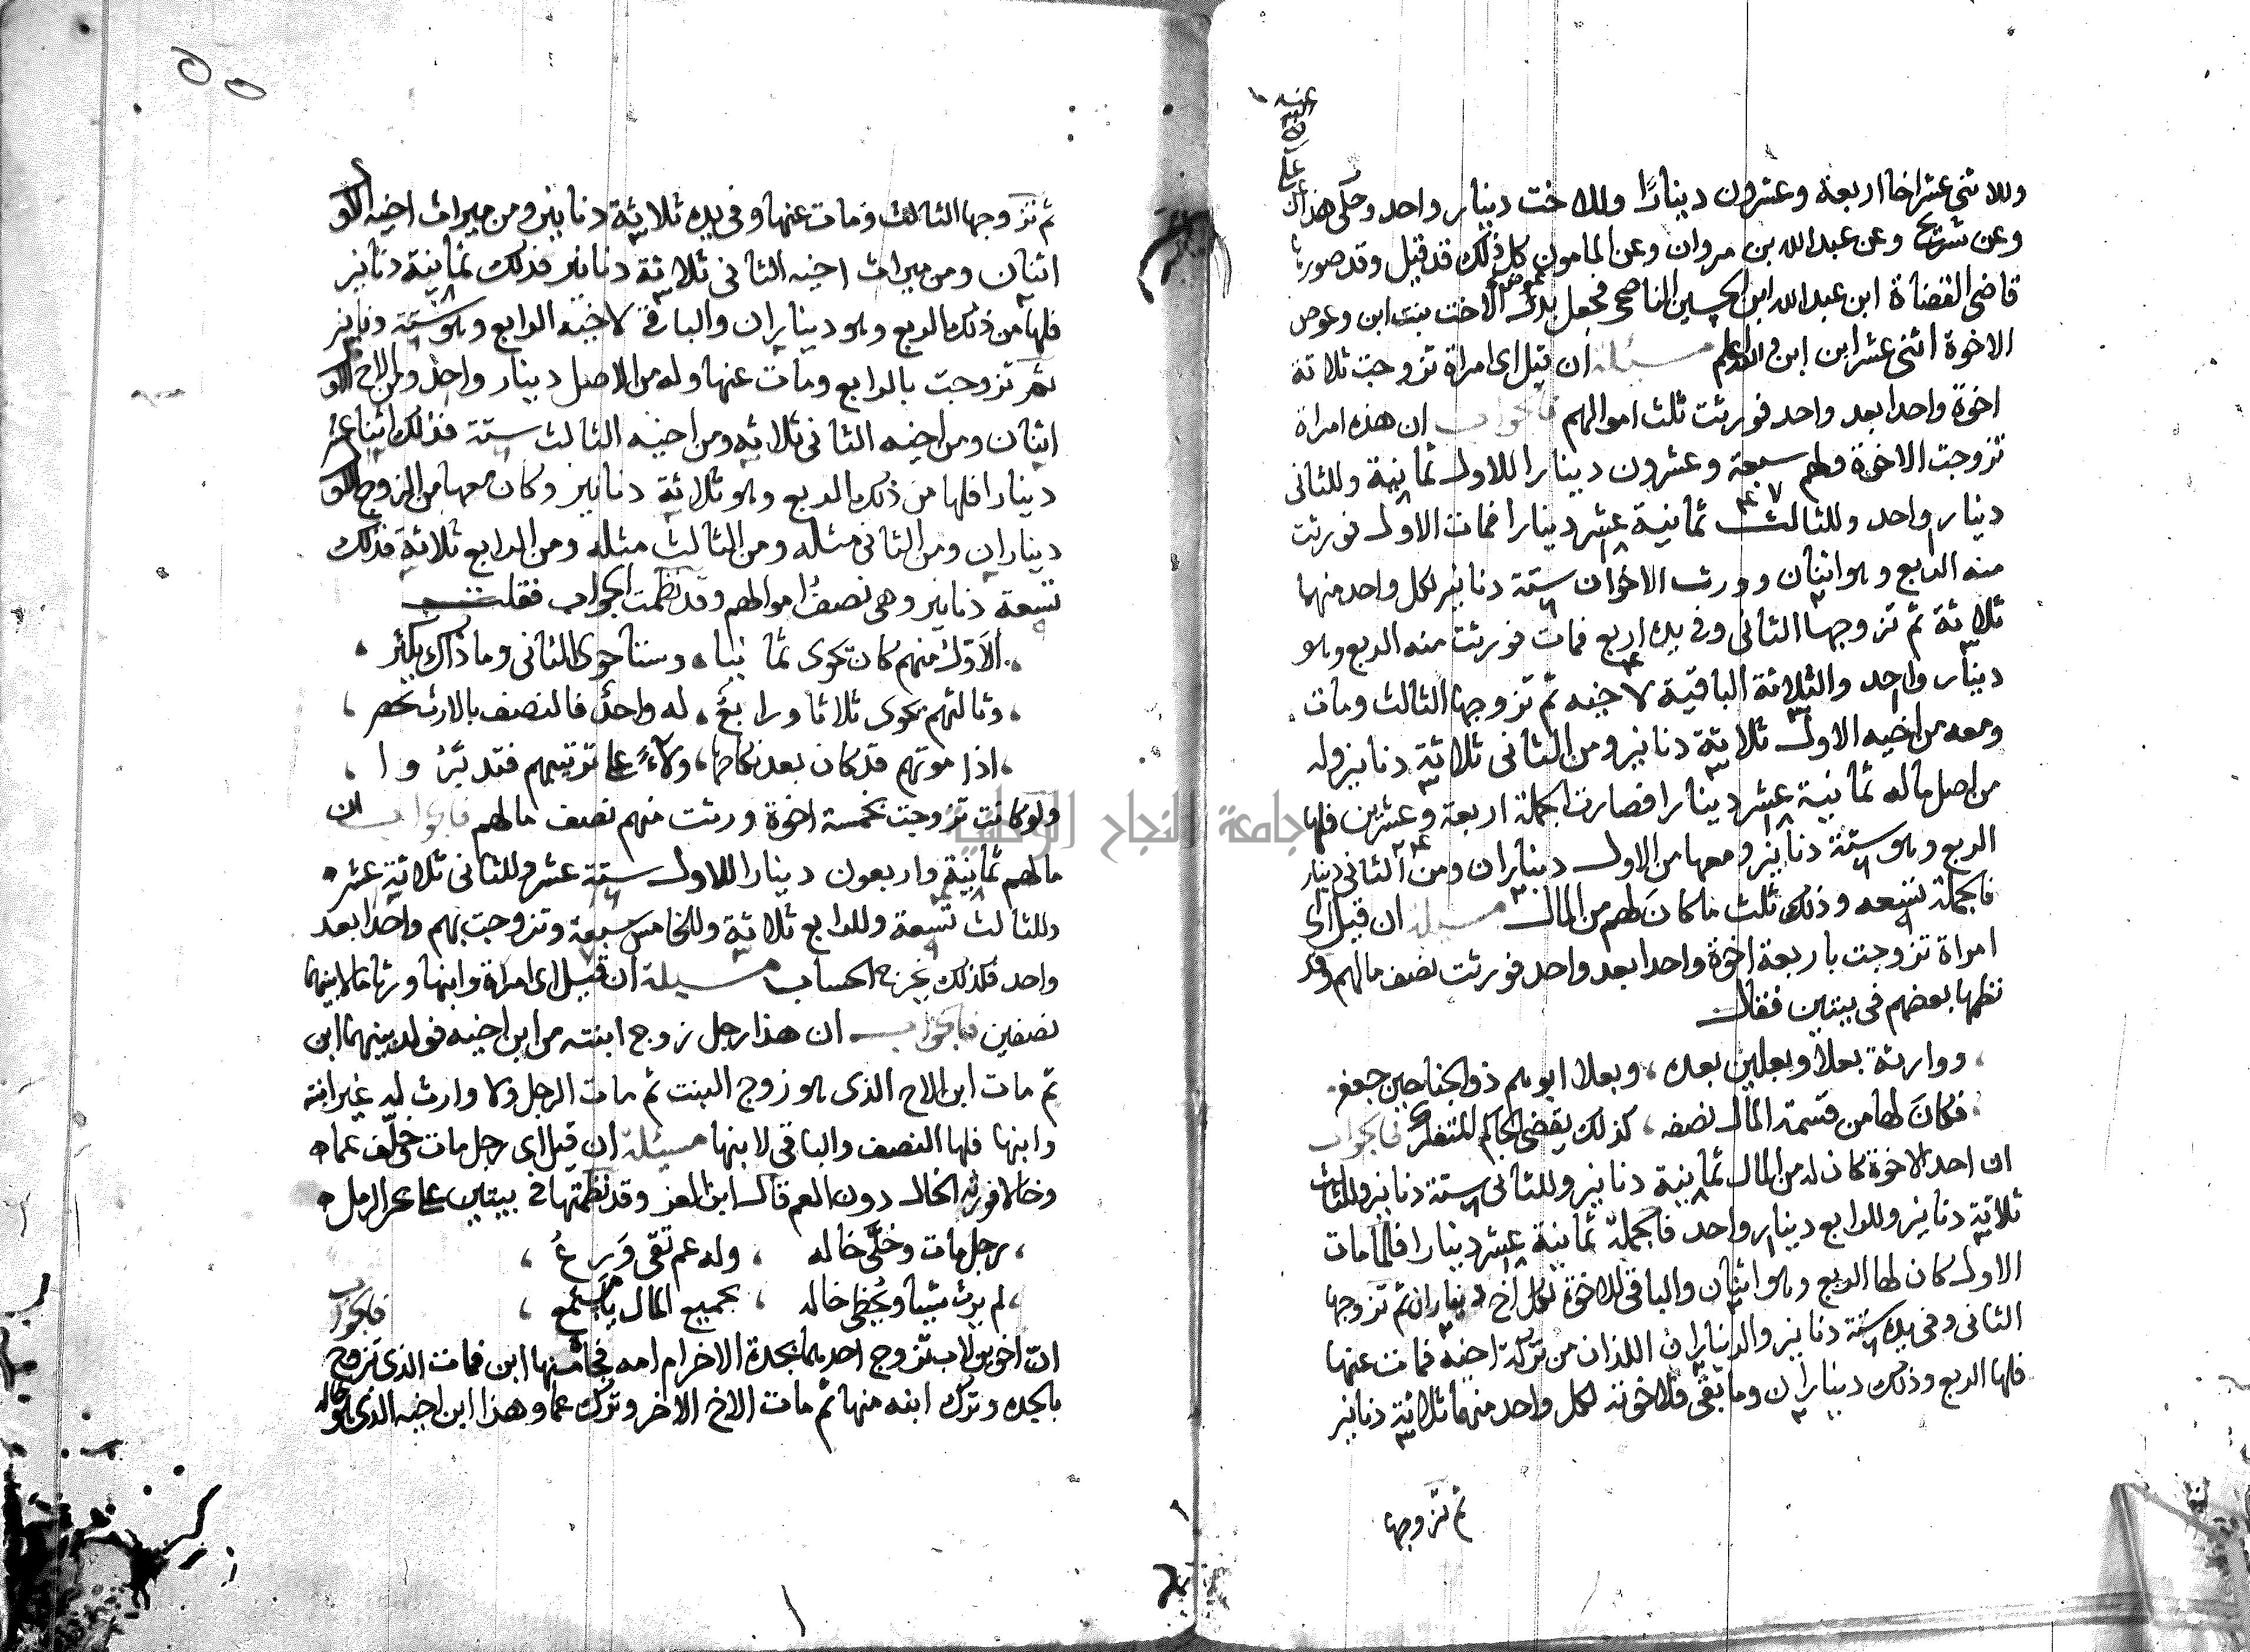 عنه
على
وللاثنى عشر اخا اربعة وعشرون دينارًا وللاخت دينار واحد وحكى هذا عن
وعن شريح وعن عبد الله بن مروان وعن المامون كل ذلك قد قيل وقد صورها
قاضى القضاة ابن عبد الله ابن الحسين الناصحى فجعل بدل الاخت بنت ابن وعوض
الاخوة اثنى عشر ابن ابن والله اعلم مسئلة ان قيل اى امراة تزوجت ثلاثة
اخوة واحدا بعد واحد فورثت ثلث اموالهم فالجواب ان هذه امراة
تزوجت الاخوة ولهم سبعة وعشرون دينارا للاول ثمانية وللثانى
دينار واحد وللثالث ثمانية عشر دينارا فمات الاول فورثت
منه الربع وهو اثنان وورث الاخوان ستة دنانير لكل واحد منهما
ثلاثة ثم تزوجها الثانى وفى يده اربع فمات فورثت منه الربع وهو
دينار واحد والثلاثة الباقية لاخيه ثم تزوجها الثالث ومات
ومعه من اخيه الاول ثلاثة دنانير ومن الثانى ثلاثة دنانير وله
من اصل ماله ثمانية عشر دينارا فصارت الجملة اربعة وعشرين فلها
الربع وهو ستة دنانير ومعها من الاول ديناران ومن الثانى دينار
فالجملة تسعه وذلك ثلث ما كان لهم من المال مسيلة ان قيل اى
امراة تزوجت باربعة اخوة واحدا بعد واحد فورثت نصف مالهم وقد
نظمها بعضهم فى بيتين فقال
ووارثة بعلا وبعلين بعده ، وبعلا ابوهم ذو الجناحين جعفر
فكان لها من قسمة المال نصفه ، كذلك يقضى الحاكم المتفكر فالجواب
ان احد الاخوة كان له من المال ثمانية دنانير وللثانى ستة دنانير وللثالث
ثلاثة دنانير وللرابع دينار واحد فالجملة ثمانية عشر دينارا فلما مات
الاول كان لها الربع وهو اثنان والباقى للاخوة لكل اخ ديناران ثم تزوجها
الثانى وفى يده ستة دنانير والديناران اللذان من تركة اخيه فمات عنها
فلها الربع وذلك ديناران وما بقى فلاخوته لكل واحد منهما ثلاثة دنانير
ثم تزوجها
ثم تزوجها الثالث ومات عنها وفى يده ثلاثة دنانير ومن ميراث اخيه الاول
اثنان ومن ميراث اخيه الثانى ثلاثة دنانير فذلك ثمانية دنانير
فلها من ذلك الربع وهو ديناران والباقى لاخيه الرابع وهو ستة دنانير
ثم تزوجت بالرابع ومات عنها وله من الاصل دينار واحد ومن الاخ الاول
اثنان ومن اخيه الثانى ثلاثه ومن اخيه الثالث ستة فذلك اثنا عشر
دينارا فلها من ذلك الربع وهو ثلاثة دنانير وكان معها من الزوج الاول
ديناران ومن الثانى مثله ومن الثالث مثله ومن الرابع ثلاثة فذلك
تسعة دنانير وهى نصف اموالهم وقد نظمت الجواب فقلت
الاول منهم كان يحوى ثمانيا ، وستا حوى الثانى وما ذاك يكثر
وثالثهم يحوى ثلاثا ورابع ، له واحد فالنصف بالارث يحصر
اذا موتهم قد كان بعد نكاحها ، ولاءً على ترتيبهم فتدبروا
ولو كانت تزوجت بخمسة اخوة ورثت منهم نصف مالهم فالجواب ان
مالهم ثمانية واربعون دينارا للاول ستة عشر وللثانى ثلاثة عشر
وللثالث تسعة وللرابع ثلاثة وللخامس سبعة وتزوجت بهم واحدا بعد
واحد فكذلك يخرج الحساب مسيلة ان قيل اى امراة وابنها ورثا مالا بينهما
نصفين فالجواب ان هذا رجل زوج ابنته من ابن اخيه فولد بينهما ابن
ثم مات ابن الاخ الذى هو زوج البنت ثم مات الرجل ولا وارث له غير ابنته
وابنها فلها النصف والباقى لابنها مسيلة ان قيل اى رجل مات خلّف عما
وخالا فورثه الخال دون العم قال ابن العز وقد نظمتها فى بيتين على بحر الرمل
رجل مات وخلّى خاله ، وله عم تقى وَرِعُ ،
لم يرث شيا ويُحظى خاله ، بجميع المال يستمتع ، فالجواب
ان اخوين لاب تزوج احدهما بجدة الاخر ام امه فجا منها ابن فمات الذى تزوج
بالجده وترك ابنه منها ثم مات الاخ الاخر وترك عما وهذا ابن اخيه الذى هو خاله